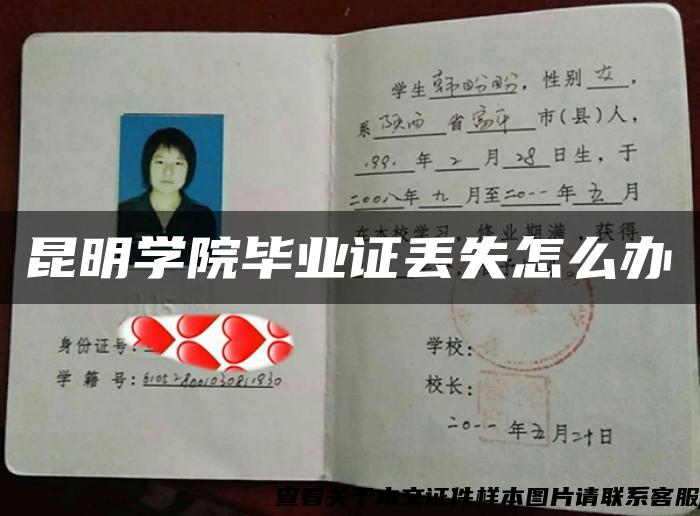 学生韩盼盼，性别女，
系陕西省富平市(县)人，
199.年2月28日生，于
二00八年九月至二0一一年五月
在本校学习，修业期满，获得
昆明学院毕业证丢失怎么办
身份证号：
学籍号：610528001030811930
学校：
校长：
二0一一年五月二十日
查看关于本文证件样本图片请联系客服